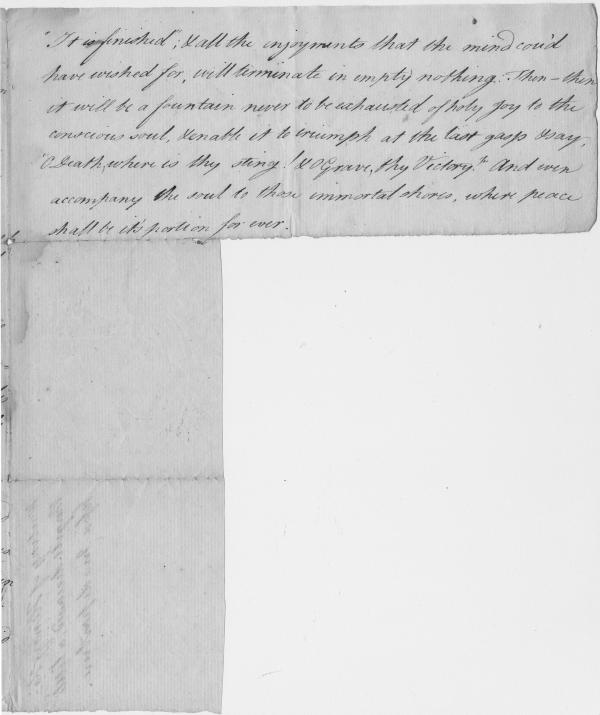 "It is finished"; & all the enjoyments that the mind cou'd
have wished for, will terminate in empty nothing. Then – then
it will be a fountain never to be exhausted of holy joy to the
conscious soul, & enable it to triumph at the last gasp & say,
"O Death, where is thy sting! & O Grave, thy Victory." And even
accompany the soul to those immortal shores, where peace
shall be it's portion for ever.